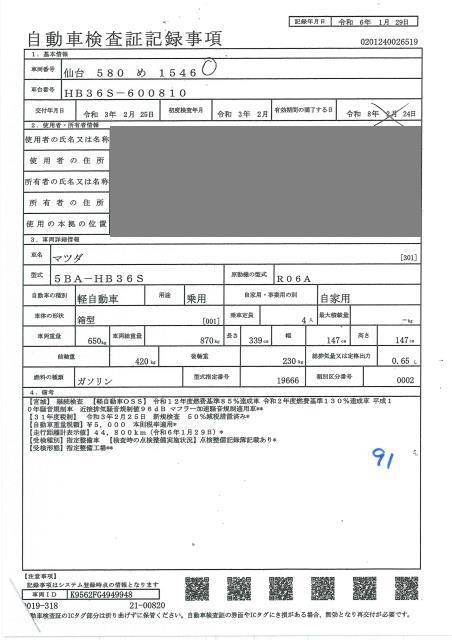 記録年月日 令和 6年 1月 29日
自動車検査証記録事項
0201240026519
1.基本情報
車両番号 仙台 580 め 1546
車台番号 HB36S-600810
交付年月日 令和 3年 2月 25日 初度検査年月 令和 3年 2月 有効期間の満了する日 令和 8年 2月 24日
2.使用者・所有者情報
使用者の氏名又は名称
使用者の住所
所有者の氏名又は名称
所有者の住所
使用の本拠の位置
3.車両詳細情報
車名 マツダ [301]
型式 5BA-HB36S 原動機の型式 R06A
自動車の種別 軽自動車 用途 乗用 自家用・事業用の別 自家用
車体の形状 箱型 [001] 乗車定員 4人 最大積載量 -kg
車両重量 650kg 車両総重量 870kg 長さ 339cm 幅 147cm 高さ 147cm
前軸重 420kg 後軸重 230kg 総排気量又は定格出力 0.65L
燃料の種類 ガソリン 型式指定番号 19666 類別区分番号 0002
4.備考
【宮城】 継続検査 【軽自動車OSS】 令和12年度燃費基準85%達成車 令和2年度燃費基準130%達成車 平成1
0年騒音規制車 近接排気騒音規制値96dB マフラー加速騒音規制適用車**
【31年度税制】 令和3年2月25日 新規検査 50%減税措置済み*
【自動車重量税額】¥5,000 本則税率適用*
【走行距離計表示値】44,800km(令和6年1月29日)*
【受検種別】指定整備車 【検査時の点検整備実施状況】点検整備記録簿記載あり*
【受検形態】指定整備工場**
91
【注意事項】
記録事項はシステム登録時点の情報となります
車両ID K9562FG4949948
019-318 21-00820
動車検査証のICタグ部分は折り曲げずに保管ください。自動車検査証の券面やICタグにき損がある場合、無効となり再交付が必要です。